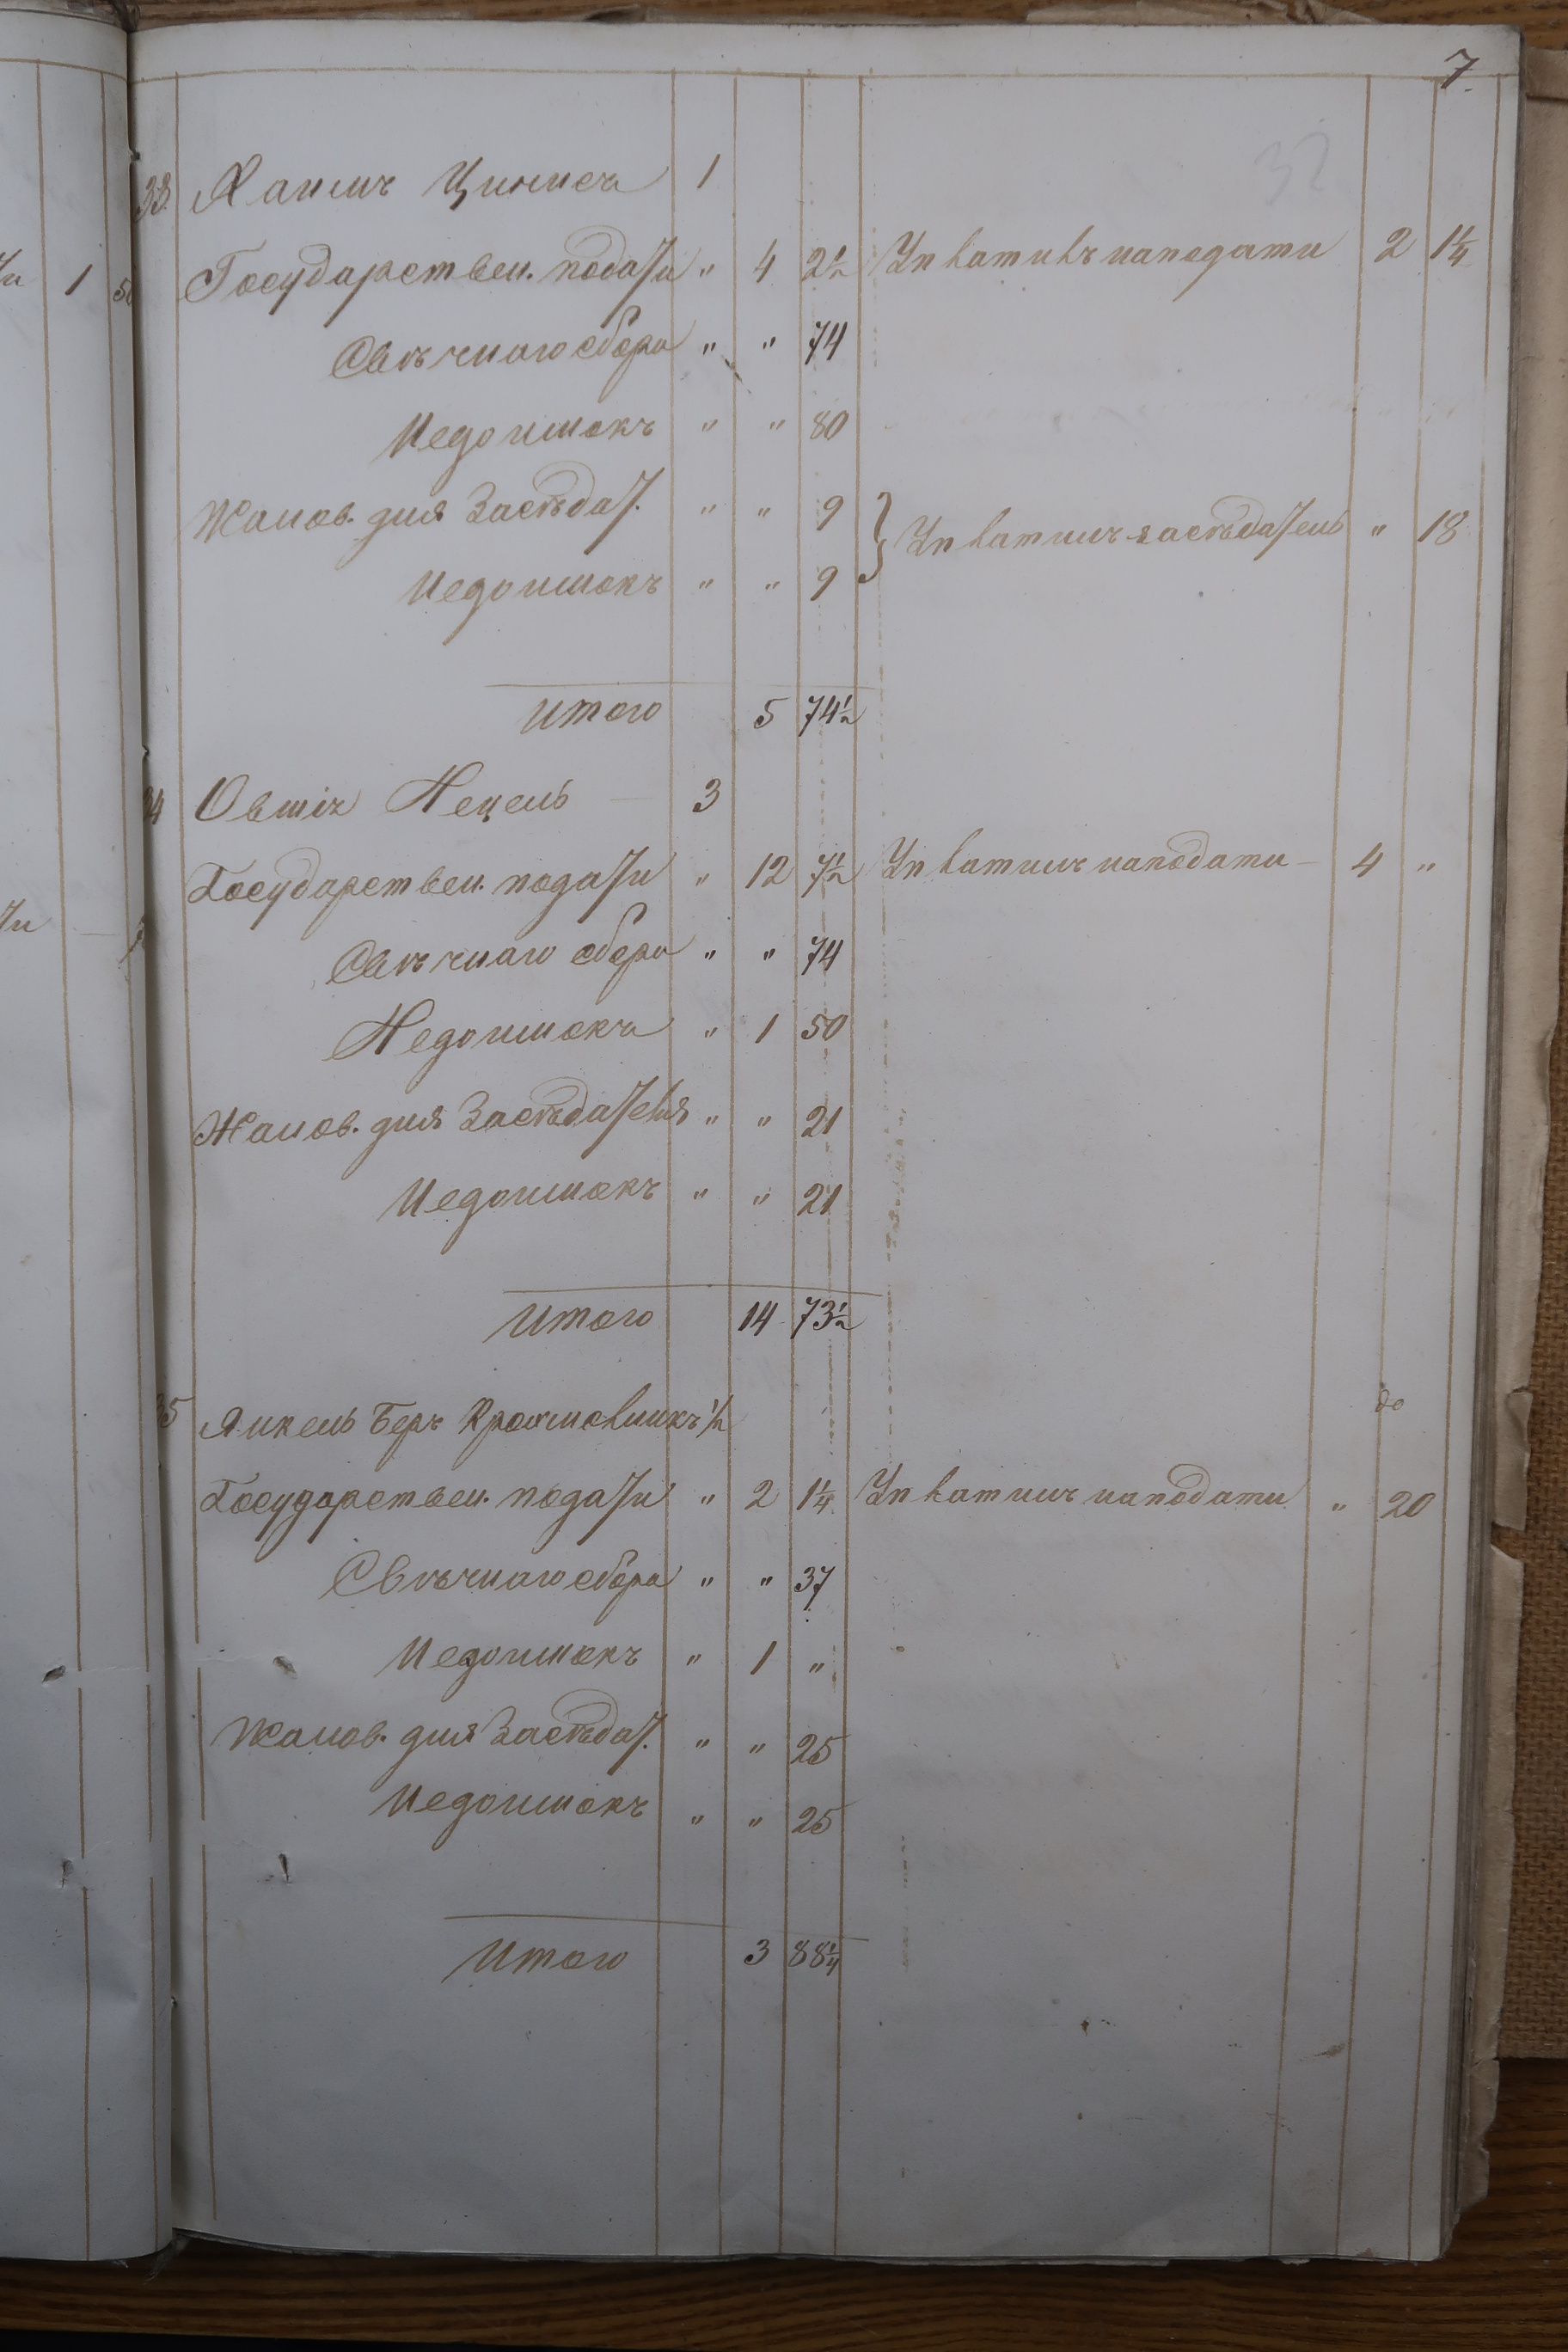 7.
32
33. Хаимъ Цинисъ 1
Государствен. подати " 4 2½ Уплатилъ наподати 2 1¼
Свѣчнаго сбора " " 74
Недоимокъ " " 80
Жалов. для Засѣдат. " " 9
} Уплатилъ засѣдатель " 18
Недоимокъ " " 9
Итого 5 74½
34 Овшіъ Нецель 3
Государствен. подати " 12 7½ Уплатилъ наподати 4 "
Свѣчнаго сбора " " 74
Недоимокъ " 1 50
Жалов. для Засѣдателя " " 21
Недоимокъ " " 21
Итого 14 73½
35 Янкель Беръ ½
Государствен. подати " 2 1¼ Уплатилъ наподати " 20
Свѣчнаго сбора " " 37
Недоимокъ " 1 "
Жалов. для Засѣдат. " " 25
Недоимокъ " " 25
Итого 3 88¼